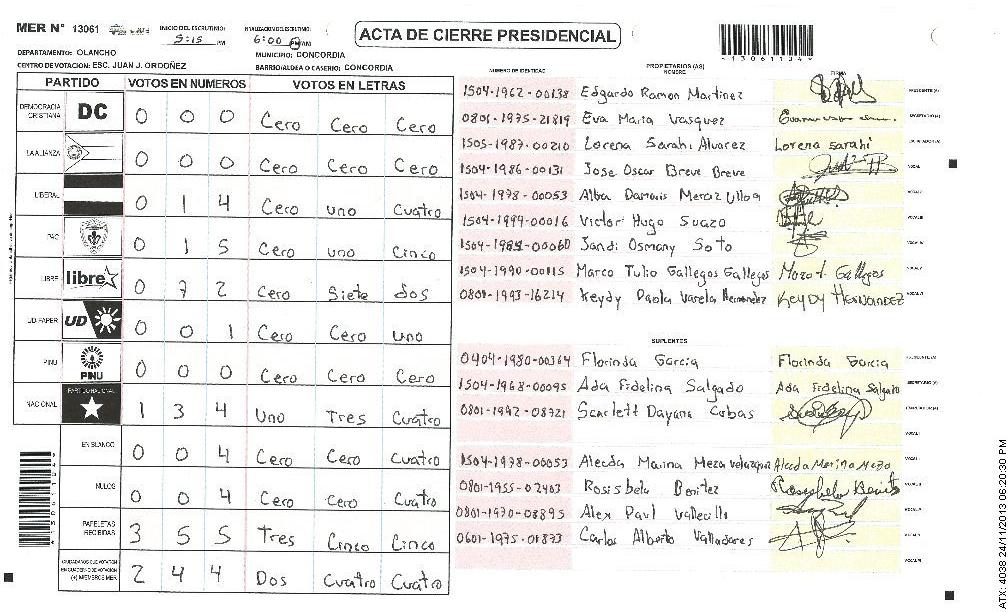 MER N° 13061 INICIO DEL ESCRUTINIO: 5:15 PM FINALIZACION DEL ESCRUTINIO: 6:00 PM AM
ACTA DE CIERRE PRESIDENCIAL
*13061104*
DEPARTAMENTO: OLANCHO MUNICIPIO: CONCORDIA
CENTRO DE VOTACION: ESC. JUAN J. ORDOÑEZ BARRIO/ALDEA O CASERIO: CONCORDIA
PARTIDO VOTOS EN NUMEROS VOTOS EN LETRAS
DEMOCRACIA CRISTIANA DC 0 0 0 Cero Cero Cero
LA ALIANZA 0 0 0 Cero Cero Cero
LIBERAL 0 1 4 Cero uno Cuatro
PAC 0 1 5 Cero uno Cinco
LIBRE libre 0 7 2 Cero Siete dos
UD-FAPER UD 0 0 1 Cero Cero uno
PINU PINU 0 0 0 Cero Cero Cero
NACIONAL PARTIDO NACIONAL 1 3 4 Uno Tres Cuatro
EN BLANCO 0 0 4 Cero Cero Cuatro
NULOS 0 0 4 Cero Cero Cuatro
PAPELETAS RECIBIDAS 3 5 5 Tres Cinco Cinco
CIUDADANOS QUE VOTARON EN CUADERNO DE VOTACION (+) MIEMBROS MER 2 4 4 Dos Cuatro Cuatro
NUMERO DE IDENTIDAD PROPIETARIOS (AS) NOMBRE FIRMA
1504-1962-00138 Edgardo Ramon Martinez PRESIDENTE (A)
0801-1975-21819 Eva Maria Vasquez SECRETARIO (A)
1505-1987-00210 Lorena Sarahi Alvarez Lorena Sarahi ESCRUTADOR (A)
1504-1986-00131 Jose Oscar Breve Breve VOCAL I
1504-1978-00053 Alba Damaris Meraz Ulloa VOCAL II
1504-1994-00016 Victor Hugo Suazo VOCAL III
1504-1984-00060 Jandi Osmany Soto VOCAL IV
1504-1990-00115 Marco Tulio Gallegos Gallegos Marco t. Gallegos VOCAL V
0801-1993-16214 Keydy Paola Varela Hernandez KEYDY HERNANDEZ VOCAL VI
SUPLENTES
0404-1980-00364 Florinda Garcia Florinda Garcia PRESIDENTE (A)
1504-1968-00095 Ada Fidelina Salgado Ada Fidelina Salgado SECRETARIO (A)
0801-1992-08721 Scarlett Dayana Cubas ESCRUTADOR (A)
VOCAL I
1504-1978-00053 Alecda Marina Meza Velazquez Alecda Marina Meza VOCAL II
0801-1955-02403 Rosisbela Benitez Rosisbela Benitez VOCAL III
0801-1970-08895 Alex Paul Vallecillo VOCAL IV
0601-1975-01873 Carlos Alberto Valladares VOCAL V
VOCAL VI
ATX: 4038 24/11/2013 06:20:30 PM